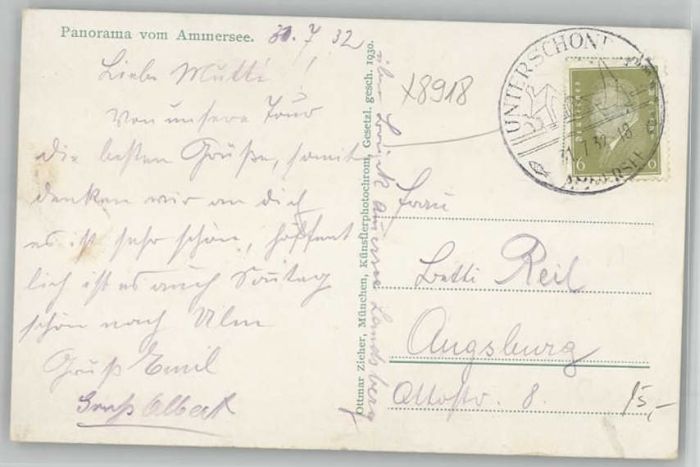 Panorama vom Ammersee. 30. 7 32
Liebe Mutti!
Von unsere Tour
die besten Grüße, somit
denken wir an dich
es ist sehr schön, hoffent
lich ist es auch Sontag
schön nach Ulm
Gruß Emil
Gruß Albert
Ottmar Zieher, München, Künstlerphotochrom, Gesetzl. gesch. 1930.
Landsberg
x8918
UNTERSCHON
AMMERSEE
7.32.18
6 6
Frau
Betti Reil
Augsburg
Ottostr. 8.
15,-